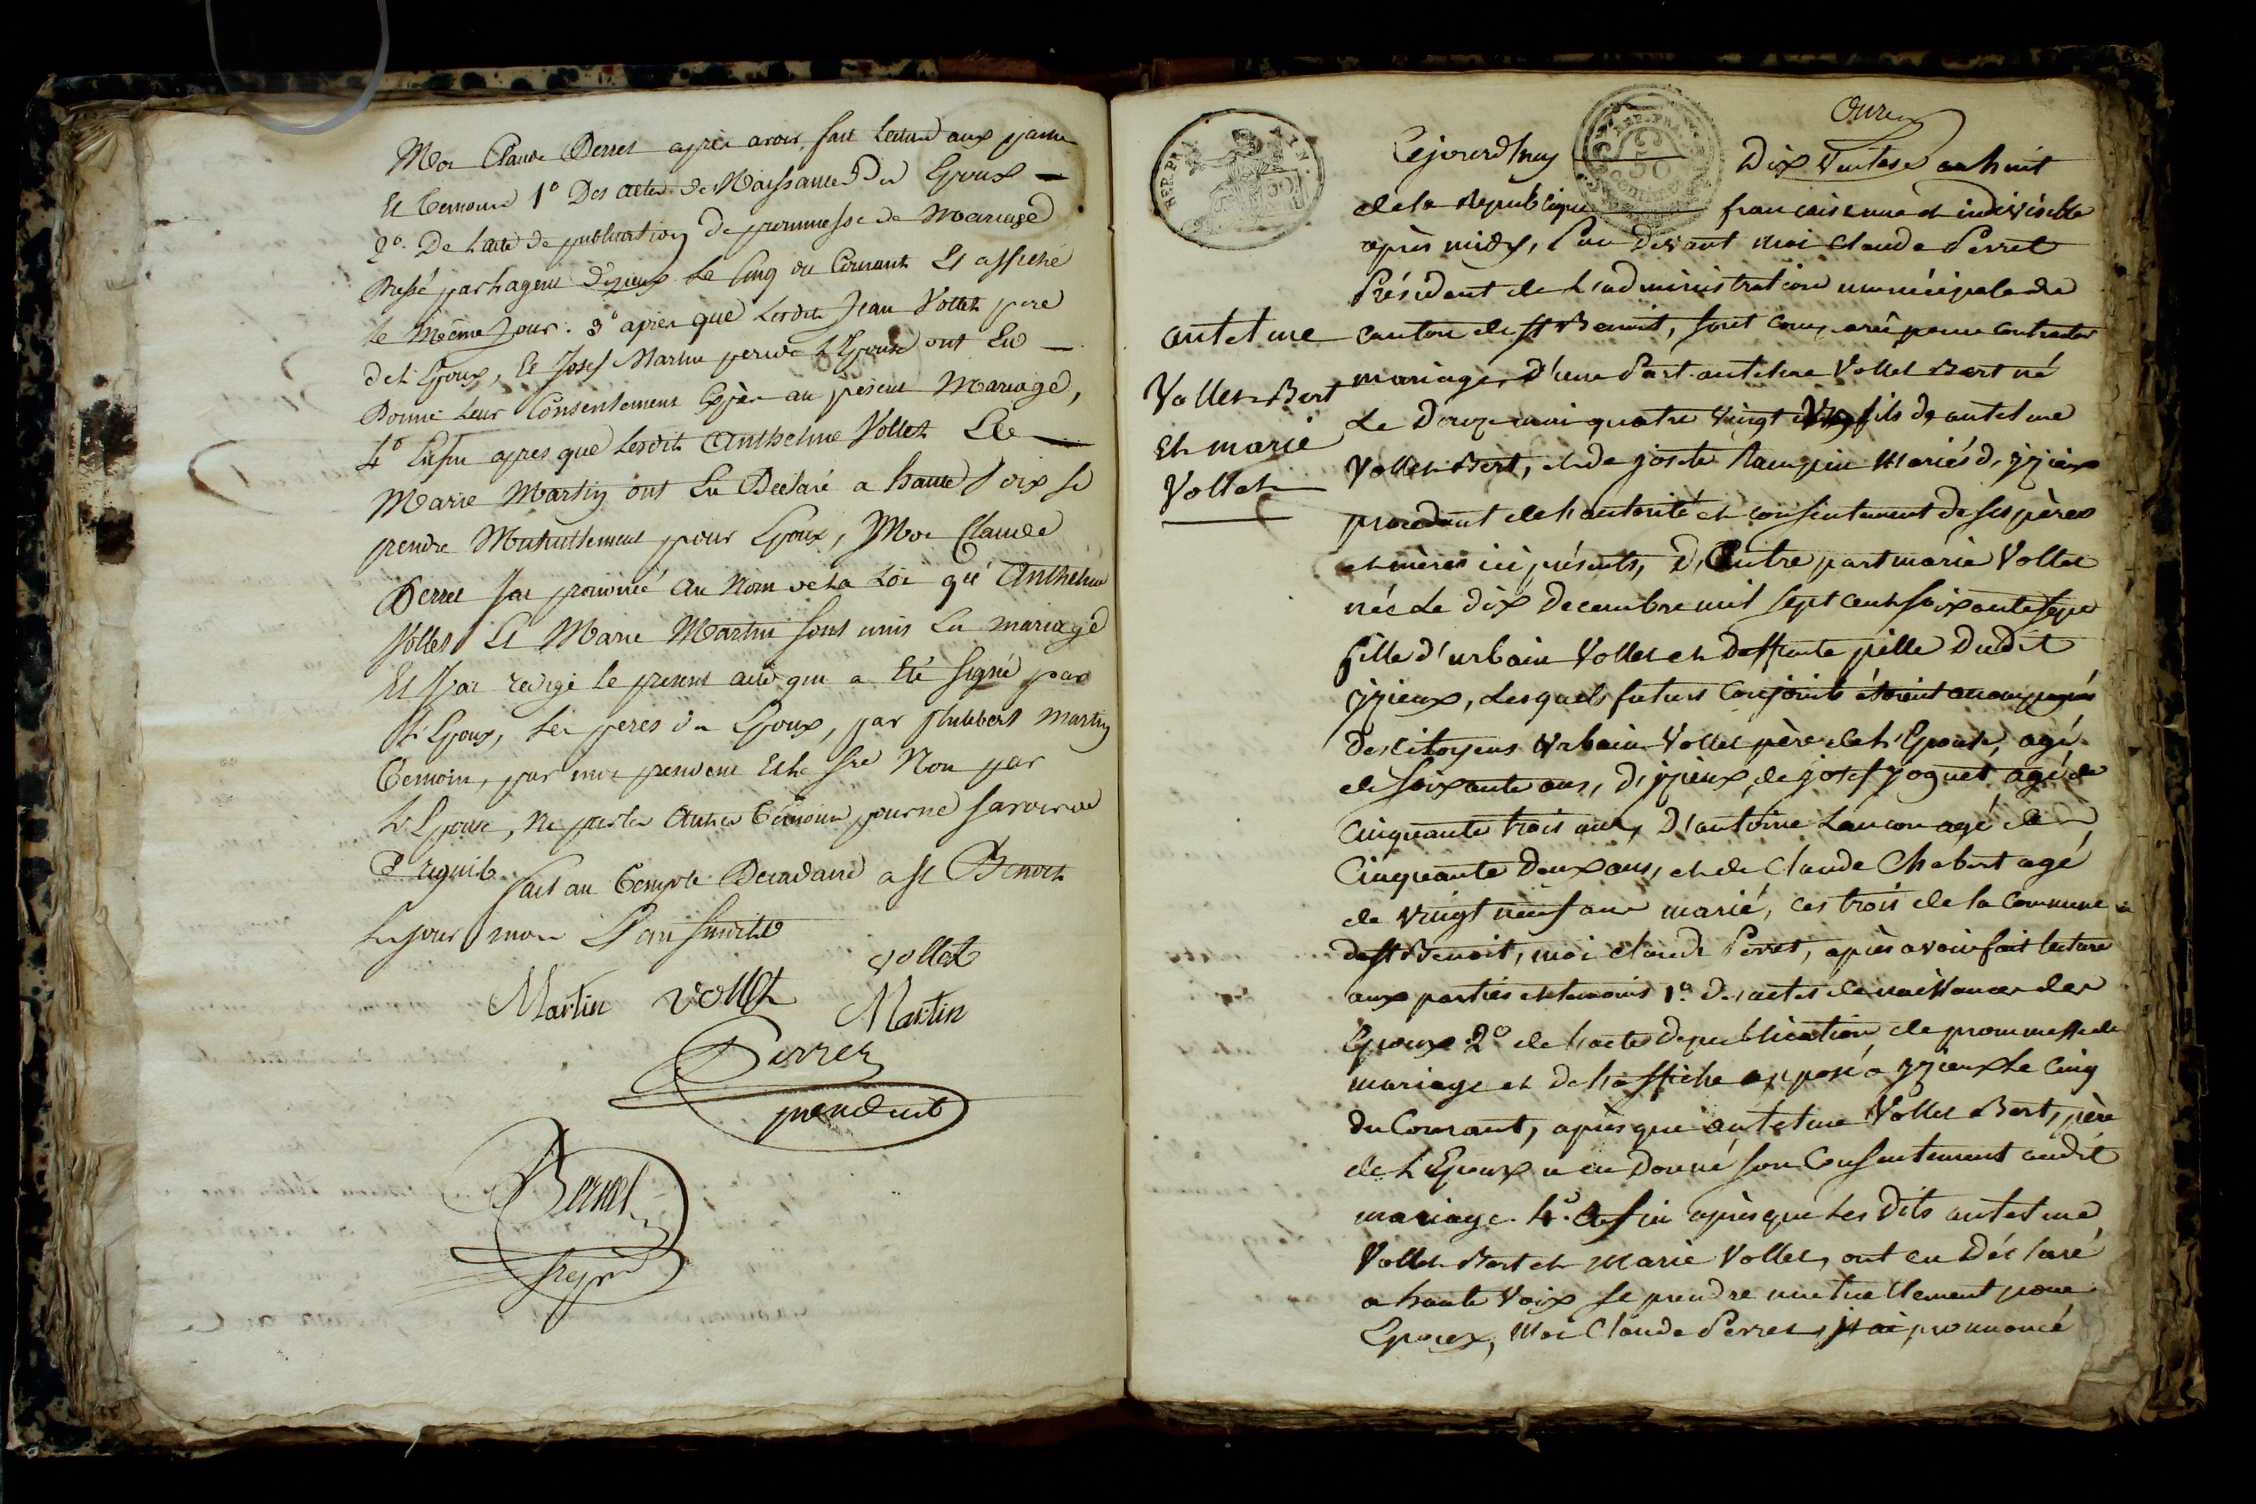 Moi Claude Perret après avoir fait lecture aux parties
Et temoins 1° Des actes de Naissance des Epoux
2°. De l'acte de publication de prommesse de Mariage
Dressé par l'agent d'izieux le Cinq du Courant Et affiché
le même Jour. 3° après que lesdits Jean Vollet pere
de l'Epoux, Et Josef Martin pere de l'Epouse ont Eu
Donné leur Consentement Exprès au présent Mariage,
4° Enfin après que lesdits Anthelme Vollet Et
Marie Martin ont Eu Déclaré a haute Voix se
prendre Mutuellement pour Epoux, Moi Claude
Perret J'ai prononcé au Nom de la Loi qu'Anthelme
Vollet Et Marie Martin sont unis En mariage
Et J'ai redigé le present acte qui a Eté signé par
l'Epoux, les peres des Epoux, par Martin
Temoin, par moi president Et le Sre Non par
l'Epouse, Ni par les Autres Témoins pour ne savoir de
Ce requis. fait au Temple Decadaire a St Benoit
les jour mois Et an susdits
vollet
Martin vollet Martin
Perret
president
Bernet
Onze
REP. FRA.
AIN.
REP. FRA.
50
CENTIMES
Cejourd'huy Dix Ventose an huit
de la Republique francaise une et indivisible
après midy, Par devant moi Claude Perret
Président de l'administration municipale du
canton de St Benoit, sont comparû pour contracter
antelme
Vollet Bert
Et marie
Vollet
mariage, d'une Part antelme Vollet Bert né
Le Douze mai quatre vingt fils d'antelme
Vollet Bert, et de josete Mariés d'yzieux
procedant de l'autorité et consentement de ses pères
et mères ici présents, D'Autre part marie Vollet
née Le dix Decembre mil sept cent soixante sept
fille d'urbain Vollet et Deffunte pille Dudit
yzieux, Lesquels futurs conjoints étoient accompagnés
des Citoyens Urbain Vollet père de l'Epouse, agé
de soixante ans, d'yzieux, de josef joguet agé de
Cinquante trois ans, D'antoine Lancon agé de
Cinquante Deux ans, et de Claude Chabert agé
de vingt neuf ans marié, ces trois de la commune
de St Benoit, moi claude Perret, après avoir fait lecture
aux parties et temoins 1° des actes de naissance des
Epoux 2° de l'acte de publication de prommesse de
mariage et de l'affiche apposé a yzieux Le Cinq
du Courant, après que antelme Vollet Bert, père
de L'Epoux a eu Donné son Consentement audit
mariage. 4°. Enfin après que Les Dits antelme
Vollet Bert et Marie Vollet, ont eu Déclaré
a haute Voix se prendre mutuellement pour
Epoux, Moi Claude Perret, j'ai prononcé